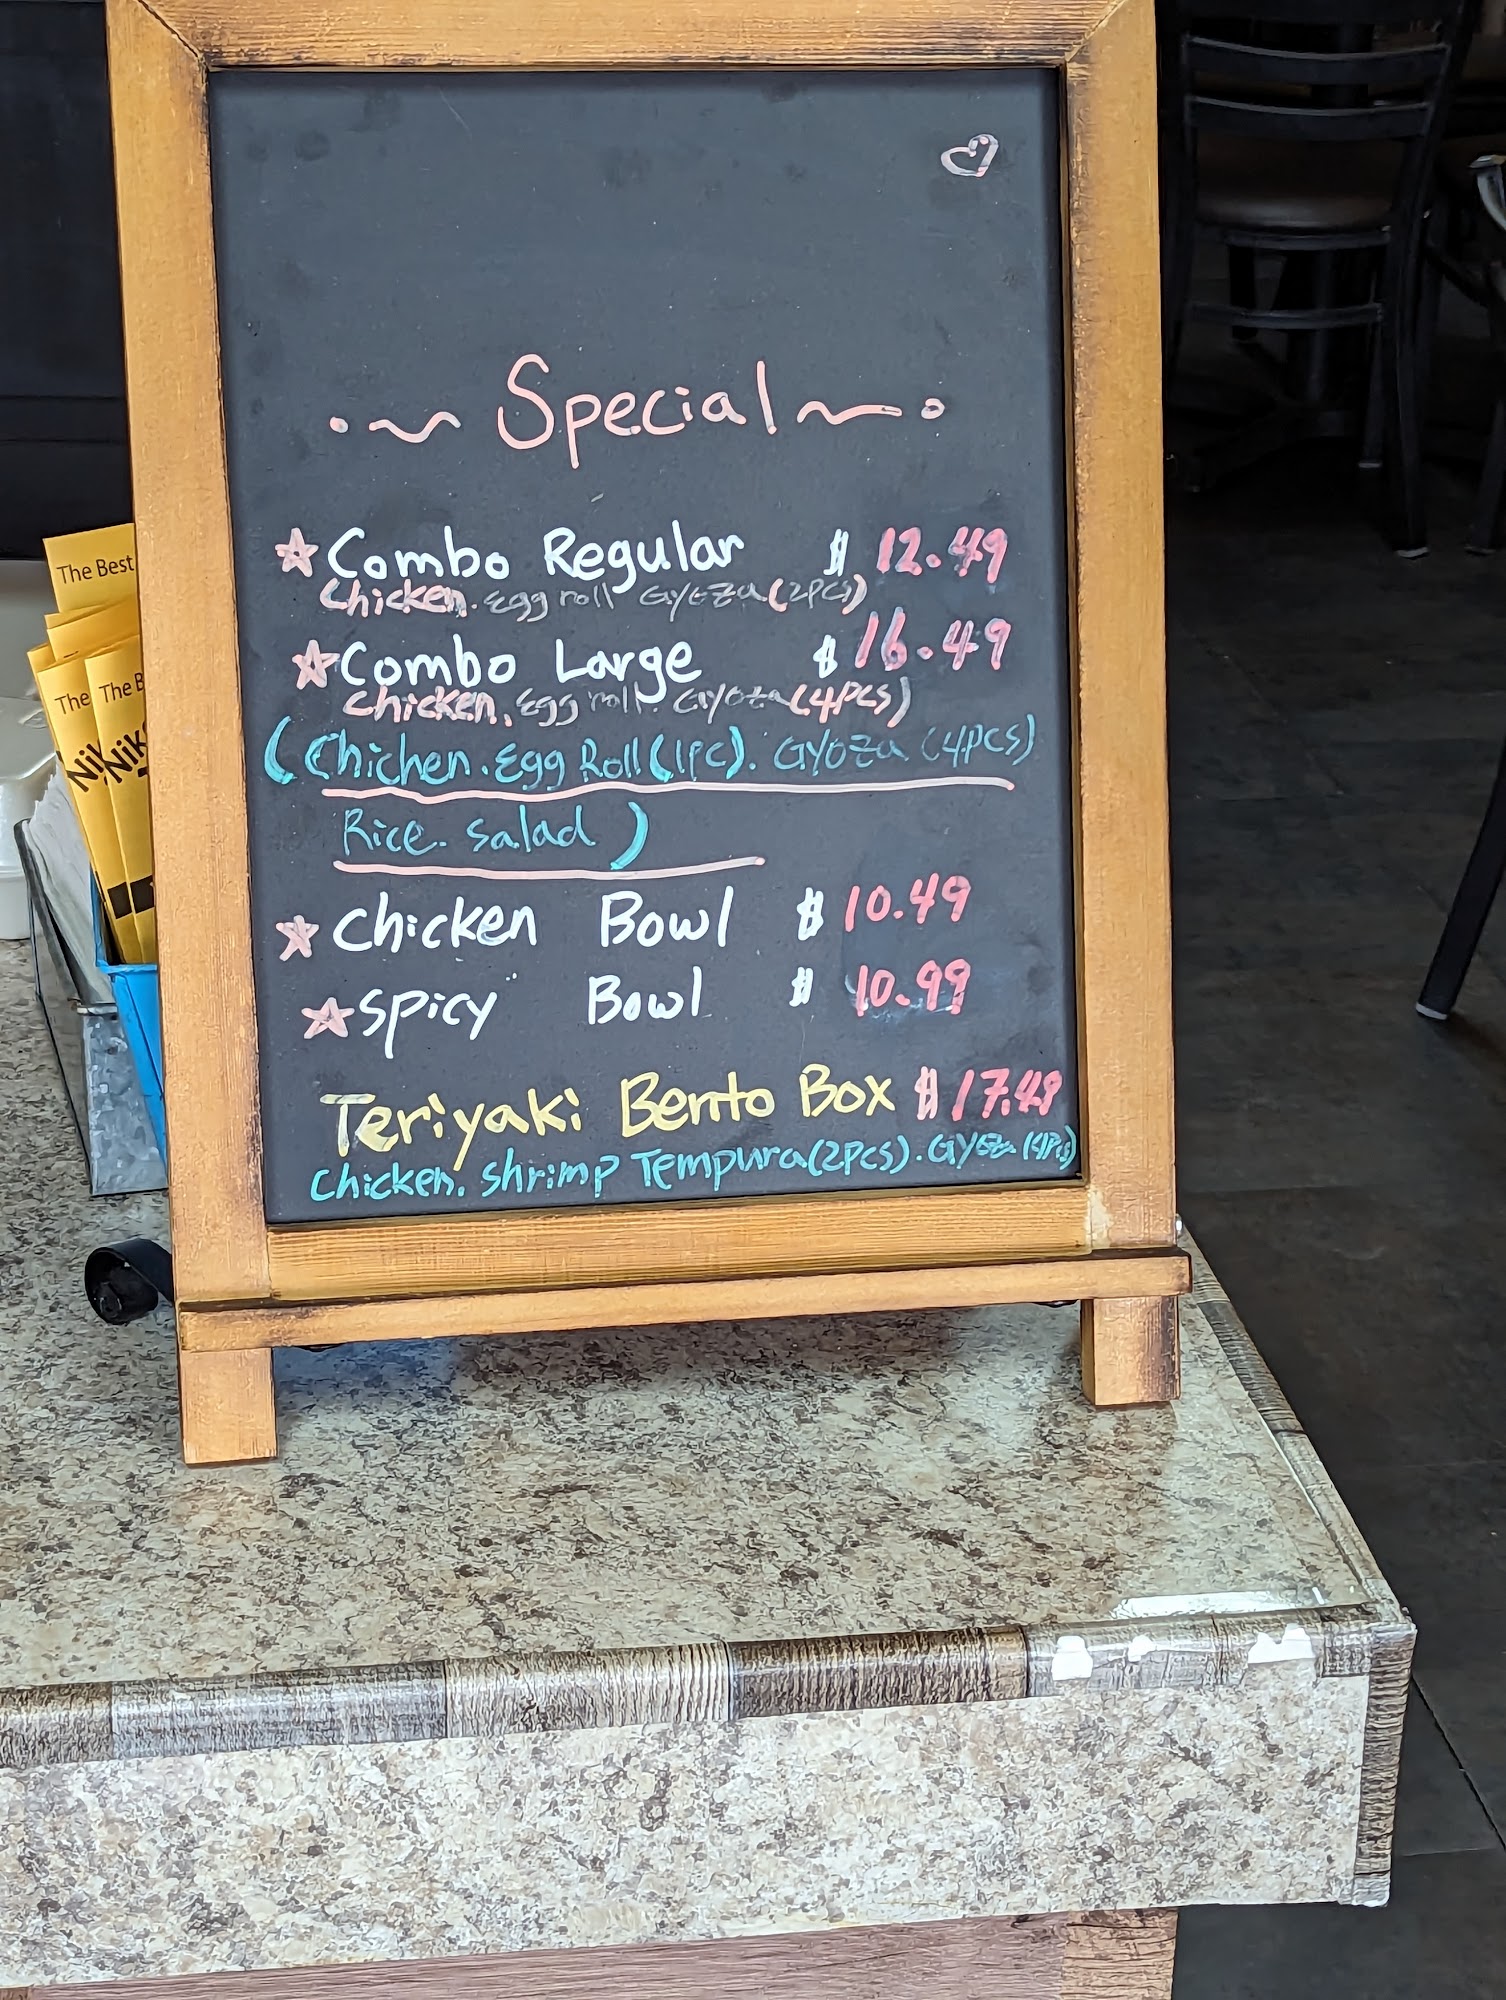 Special
Combo Regular $ 12.49
Chicken. Egg roll Gyoza (2pcs)
Combo Large $ 16.49
Chicken. Egg roll. Gyoza (4pcs)
(Chichen. Egg Roll (1pc). Gyoza (4pcs)
Rice. Salad)
Chicken Bowl $ 10.49
Spicy Bowl $ 10.99
Teriyaki Bento Box $ 17.49
Chicken. Shrimp Tempura (2pcs). Gyoza (4pcs)
The Best
The
The B
Nik
Nik